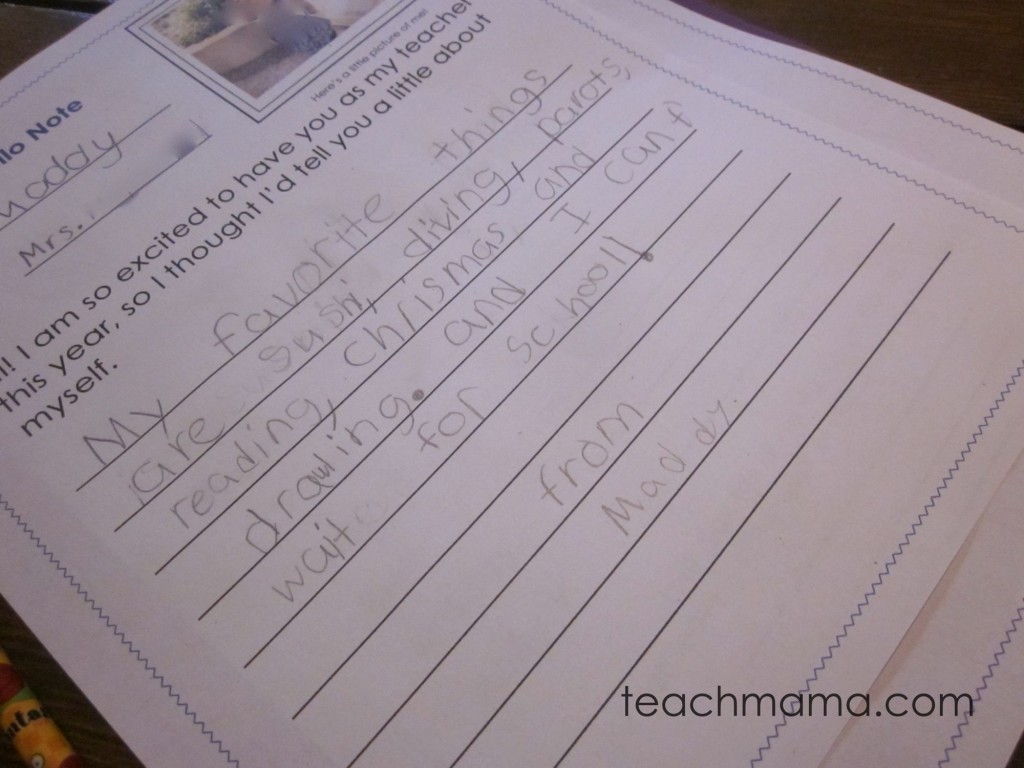 llo Note
Maddy
Mrs.
Here's a little picture of me!
I am so excited to have you as my teacher
this year, so I thought I'd tell you a little about
myself.
My favorite things
are sushi, diving, parots,
reading, christmas, and
drawling. and I can't
wait for school!
from
Maddy.
teachmama.com